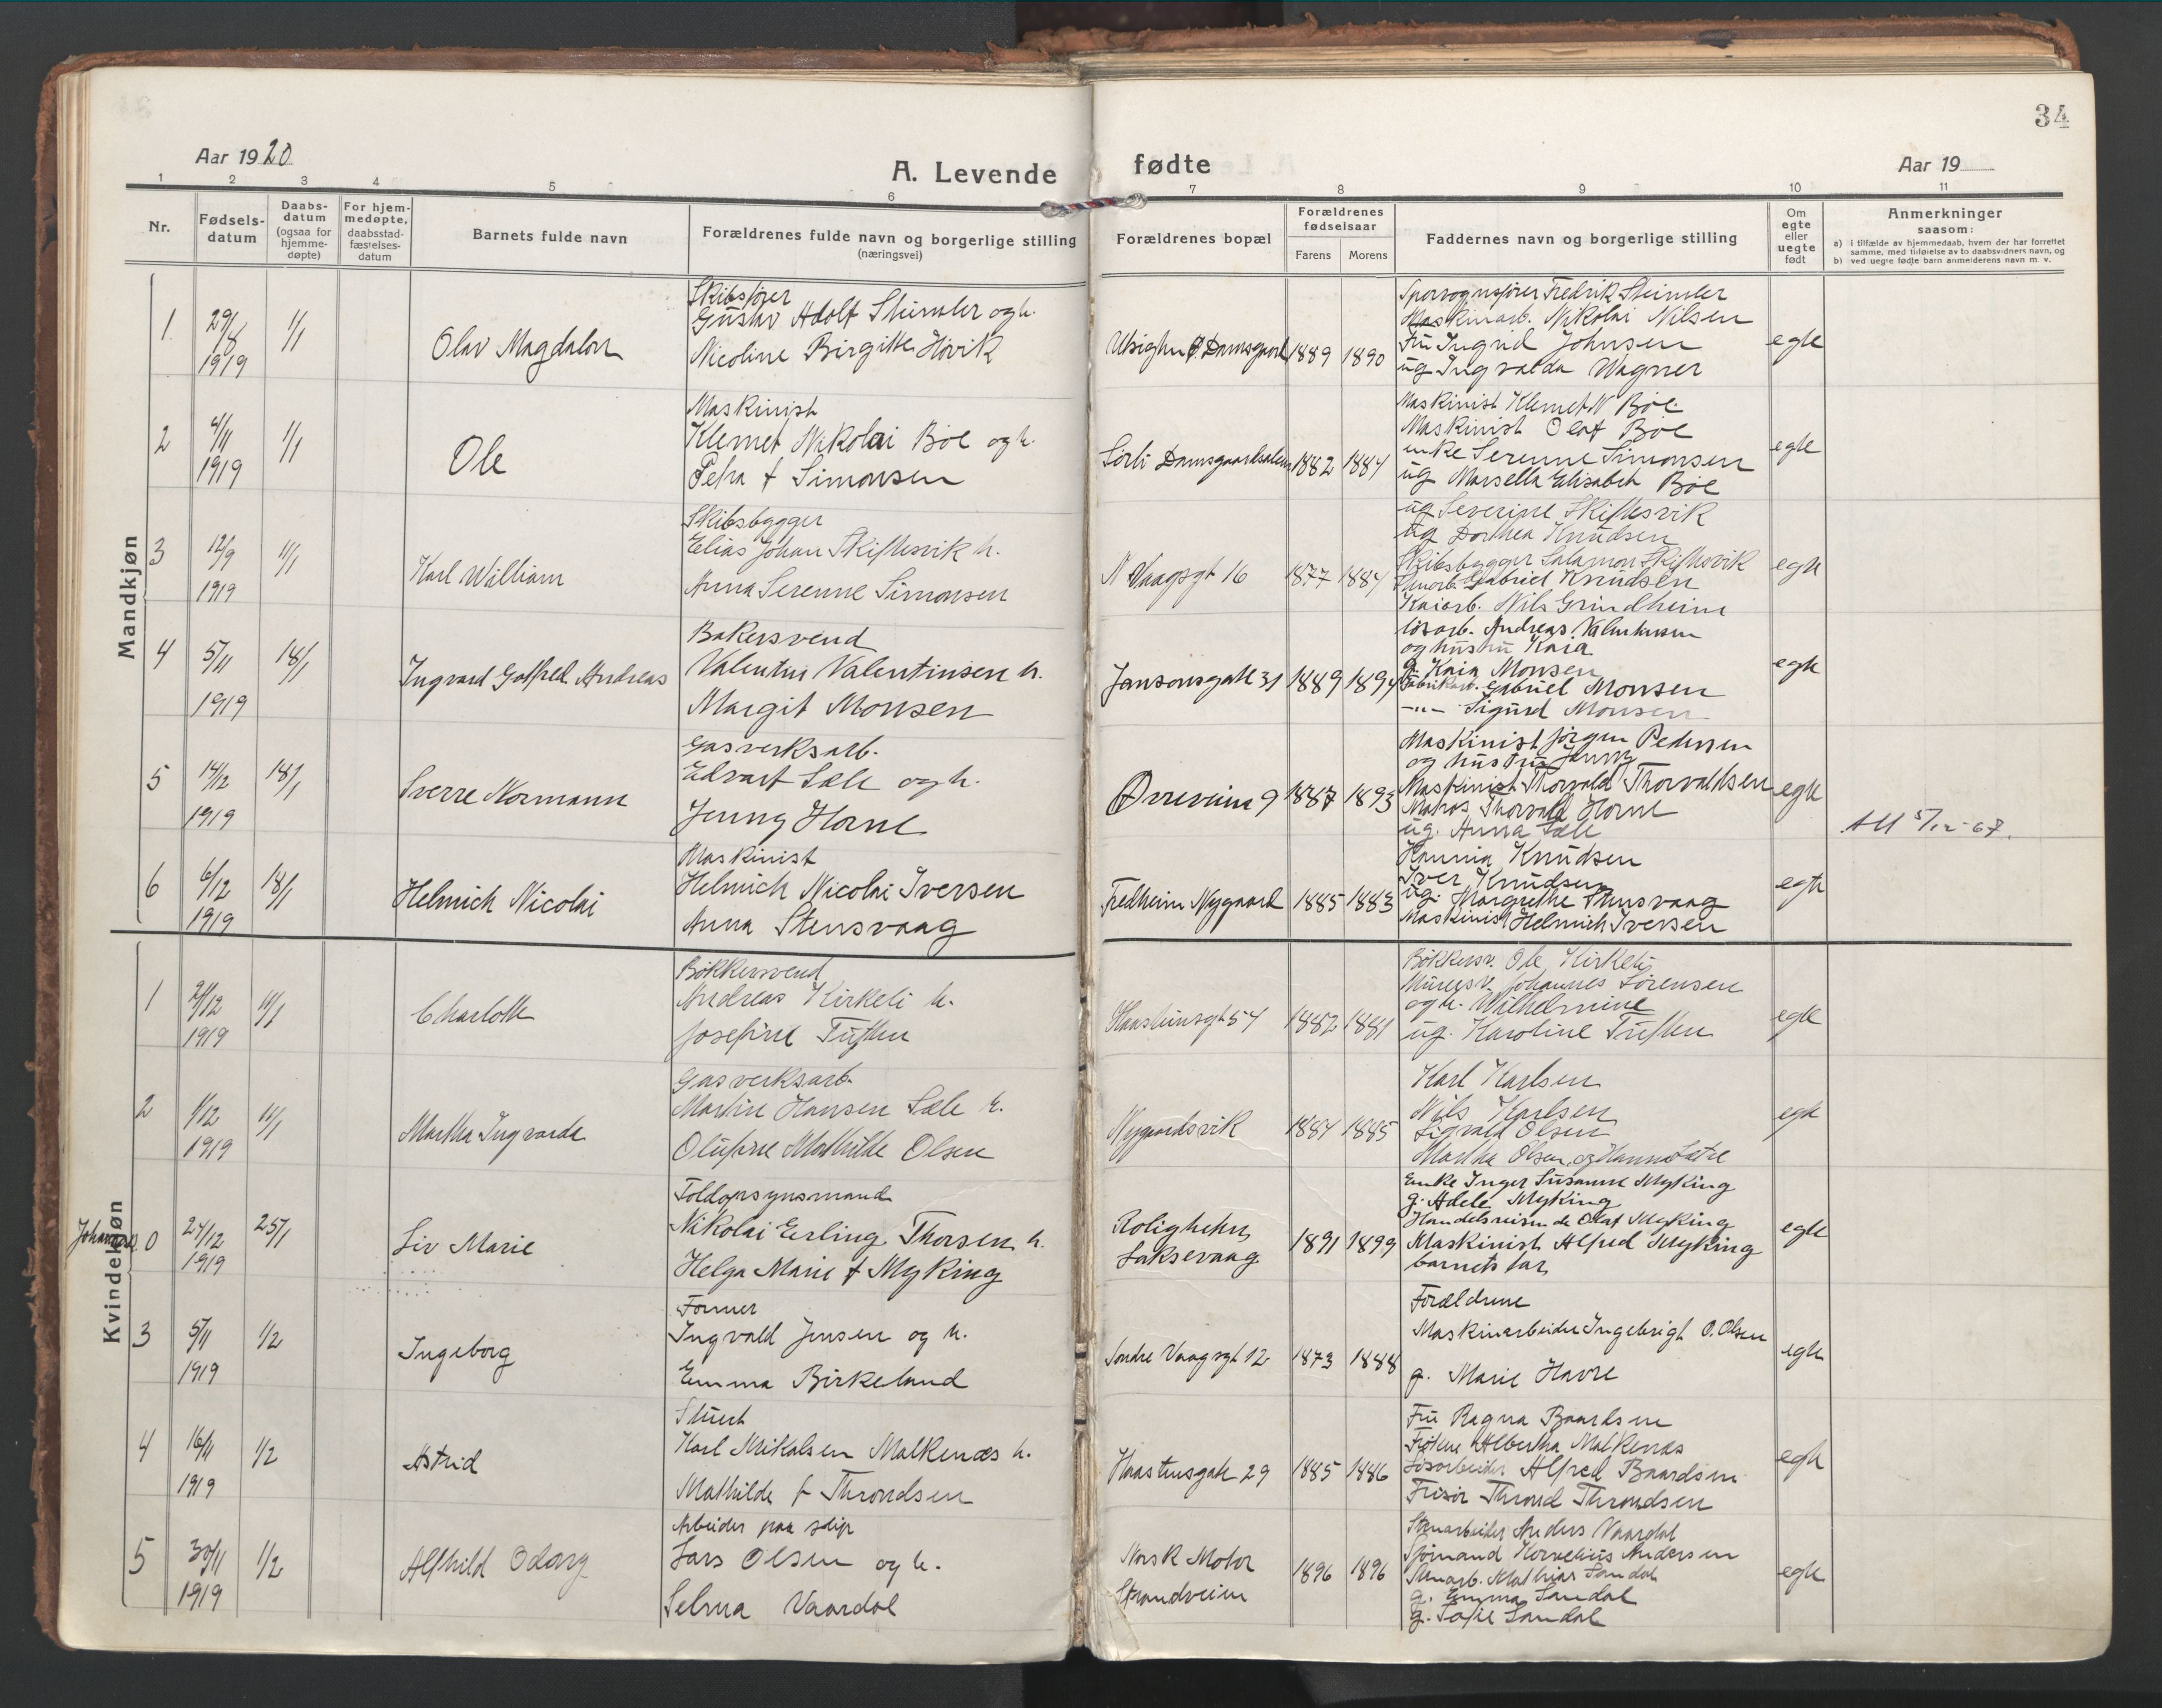 34
Aar 1920
A. Levende fødte
Aar 19
1 2 3 4 5 6 7 8 9 10 11
Nr.
Fødsels-
datum
Daabs-
datum
(ogsaa for
hjemme-
døpte)
For hjem-
medøpte,
daabsstad-
fæstelses-
datum
Barnets fulde navn
Forældrenes fulde navn og borgerlige stilling
(næringsvei)
Forældrenes bopæl
Forældrenes
fødselsaar
Farens Morens
Faddernes navn og borgerlige stilling
Om
egte
eller
uegte
født
Anmerkninger
saasom:
a) i tilfælde av hjemmedaab, hvem der har forrettet
samme, med tilføielse av to daabsvidners navn, og
b) ved uegte fødte barn anmelderens navn m. v.
Mandkjøn
1
29/8
1919
1/1
Olav Magdalon
Skibsfører
Gustav Adolf Stümler og h.
Nicoline Birgitte Høvik
1889 1890
Sporvognsfører Fredrik Stümler
Maskinarb. Nikolai Nilsen
Fru Ingrid Johnsen
ug Ingvalda Wagner
egte
2
4/11
1919
1/1
Ole
Maskinist
Klemet Nikolai Böe og h.
Petra f Simonsen
Sorli Damsgaardsalleen
1882 1884
Maskinist Klemet N Böe
Maskinist Olaf Böe
enke Serenne Simonsen
ug Marsella Elisabeth Böe
egte
3
12/9
1919
11/1
Karl William
Skibsbygger
Elias Johan Skiftesvik h.
Anna Serenne Simonsen
N Vaagsgt 16
1877 1884
ug Severine Skiftesvik
ug Dorthea Knudsen
Skibsbygger Salamon Skiftesvik
Gabriel Knudsen
Kaiarb. Nils Grindheim
egte
4
5/11
1919
18/1
Ingvard Gotfred Andreas
Bakersvend
Valentin Valentinsen h.
Margit Monsen
Jansonsgate 31
1889 1894
løsarb. Andreas Valentinsen
og hustru Kaia
g. Kaia Monsen
Fabrikarb. Gabriel Monsen
—"— Sigurd Monsen
egte
5
14/12
1919
18/1
Sverre Normann
Gasverksarb.
Edvart Sæle og h.
Jenny Horne
Ørreveien 9
1887 1893
Maskinist Jørgen Pedersen
og hustru Jenny
Maskinist Thorvald Thorvaldsen
Matros Thorvald Horne
ug. Anna Sæle
egte
Att 5/12-67.
6
6/12
1919
18/1
Helmich Nicolai
Maskinist
Helmich Nicolai Iversen
Anna Stensvaag
Fredheim Nygaard
1885 1883
Hannia Knudsen
Iver Knudsen
ug. Margrethe Stensvaag
Maskinist Helmich Iversen
egte
Kvindekjøn
1
1919
11/1
Charlotte
Bøkkersvend
Andreas Kirkeli h.
Josefine Tuften
Haasteinsgt 54
1882 1881
Bøkkersv. Ole Kirkeli
Murersv. Johannes Sørensen
og h. Wilhelmine
ug. Karoline Tuften
egte
2
1/12
1919
11/1
Martha Ingvarda
Gasverksarb.
Martin Hansen Sæle h.
Olufine Mathilde Olsen
Nygaardsvik
1884 1885
Karl Karlsen
Nils Karlsen
Sigvald Olsen
Martha Olsen og Hanna Sætre
egte
Johannes 0
24/12
1919
25/1
Liv Marie
Toldopsynsmand
Nikolai Erling Thorsen h.
Helga Marie f Myking
Roligheten
Laksevaag
1891 1899
Enke Inger Susanne Myking
g. Adele Myking
Handelsreisende Olaf Myking
Maskinist Alfred Myking
barnets far
egte
3
5/11
1919
1/2
Ingeborg
Former
Ingvald Jensen og h.
Emma Birkeland
Søndre Vaagsgt 12
1873 1888
Forældrene
Maskinarbeider Ingebrigt O. Olsen
g. Marie Havre
egte
4
16/11
1919
1/2
Astrid
Stuert
Karl Mikalsen Malkenæs h.
Mathilde f Throndsen
Haasteinsgate 29
1885 1886
Fru Ragna Baardsen
Frøken Albertha Malkenæs
Løsarbeider Alfred Baardsen
Frisør Thrond Throndsen
egte
5
30/11
1919
1/2
Alfhild Odarg
Arbeider paa slip
Lars Olsen og h.
Selma Vaardal
Norsk Motor
Strandveien
1896 1896
Stenarbeider Anders Vaardal
Sjømand Kornelius Andersen
Stenarb. Mathias Sandal
g. Emma Sandal
g. Sofie Sandal
egte